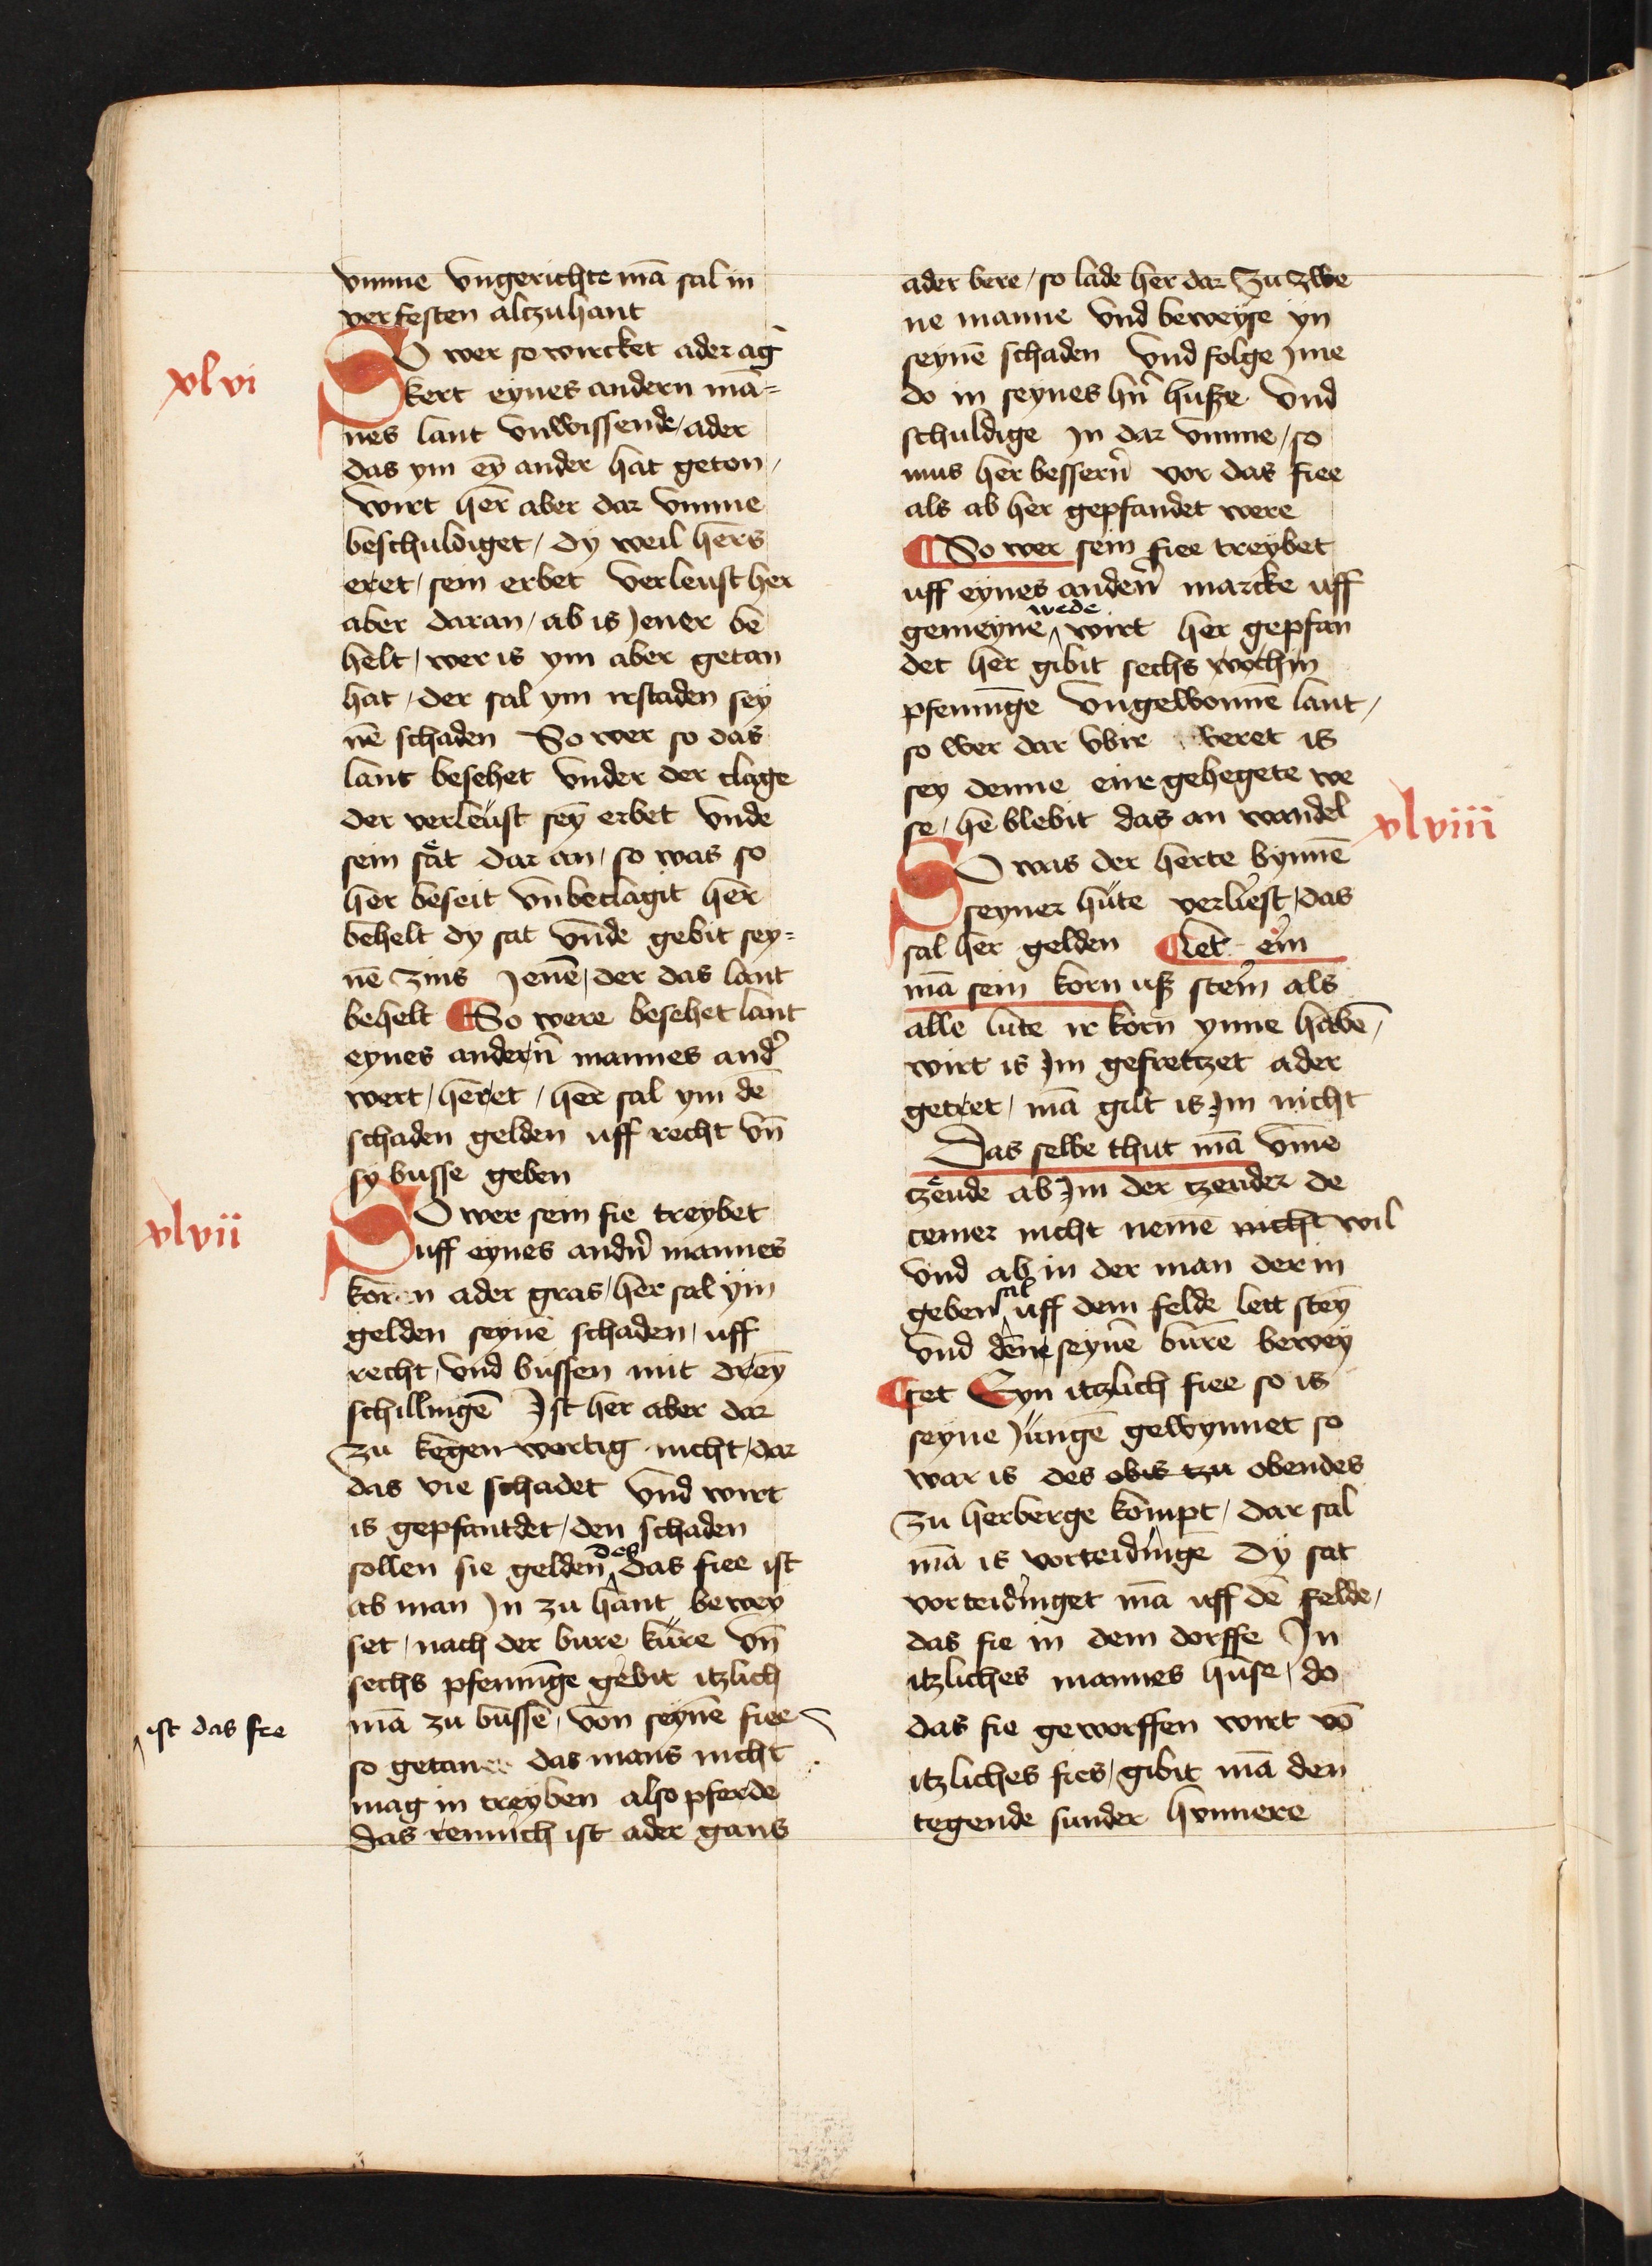 vmme vngerichte mā sal in
verfesten alczuhant
xlvi
SO wer so wircket ader ag̉
kert eynes andern mā=
nes lant vnwissende / ader
das ym eȳ ander hat geton /
wirt her aber dar vmme
beschuldiget / dy weil hers
eret / sein erbet verleust her
aber daran / ab is Jener be
helt / wer is ym aber getan
hat / der sal ym irstaden sey
nē schaden So wer so das
lant besehet vnder der clage
der verleust seȳ erbet vnde
sein sat dar an / so was so
her beseit vnbeclagit her
behelt dy sat vnde gebit sey=
nē zins Jenē / der das lant
behelt ¶ So were besehet lant
eynes andern̉ mannes and̉
wert / heret / her sal ym dē
schaden gelden uff recht vn̄
sy busse geben
xlvii
SO wer sein fie treybet
uff eynes andn̉ mannes
koren ader gras / her sal ym
gelden seynē schaden / uff
recht / vnd bussen mit drey
schillingē Ist her aber dar
zu kegenwertig nicht / dar
das vie schadet vnd wirt
is gepfantdet / den schaden
sollen sie gelden des das fiee ist
ab man Jn zu hant bewey
set / nach der bure kure vn̄
sechs pfennīge gebit itzlich
mā zu bussē / von seynē fiee
ist das fie
so getane das mans nicht
mag in treyben also pferde
das rennich ist ader gans
ader bere / so lade her dar zu zwe
ne manne vnd beweyse yn
seynē schaden vnd folge Jme
do in seynes hn̉ husze vnd
schuldige Jn dar vmme / so
mus her bessern̉ vor das fiee
als ab her gepfandet were
¶ So wer sein fiee treybet
uff eynes anden̉ marcke uff
gemeyne wede wirt her gepfan
det her gibit sechs wochin
pfennīge vngewonnē lant /
so wer dar vbir veret is
sey denne eine gehegete we
se / he blebit das an wandel
xlviii
SO was der herte bynnē
seyner hute verliest / das
sal her gelden ¶ Let ein
mā sein korn usz stein als
alle lute ir korn ynne habē /
wirt is Jm gefretzet ader
getret / mā gilt is Jm nicht
Das selbe thut mā vme
czende ab Jm der czender de
cemer nicht nemē nicht wil
vnd ab in der man der in
geben sal uff dem felde lett steȳ
vnd dēne seynē burē bewey
¶ set Eyn itzlich fiee so is
seyne Jungē gewynnet so
war is des obis czu obendes
zu herberge kompt / dar sal
mā is vorteidingē Dy sat
vorteidinget mā uff dē felde /
das fie in dem dorffe Jn
itzliches mannes huse / do
das fie geworffen wirt vō
itzliches fies / gibit mā den
tegende sunder hvnnere